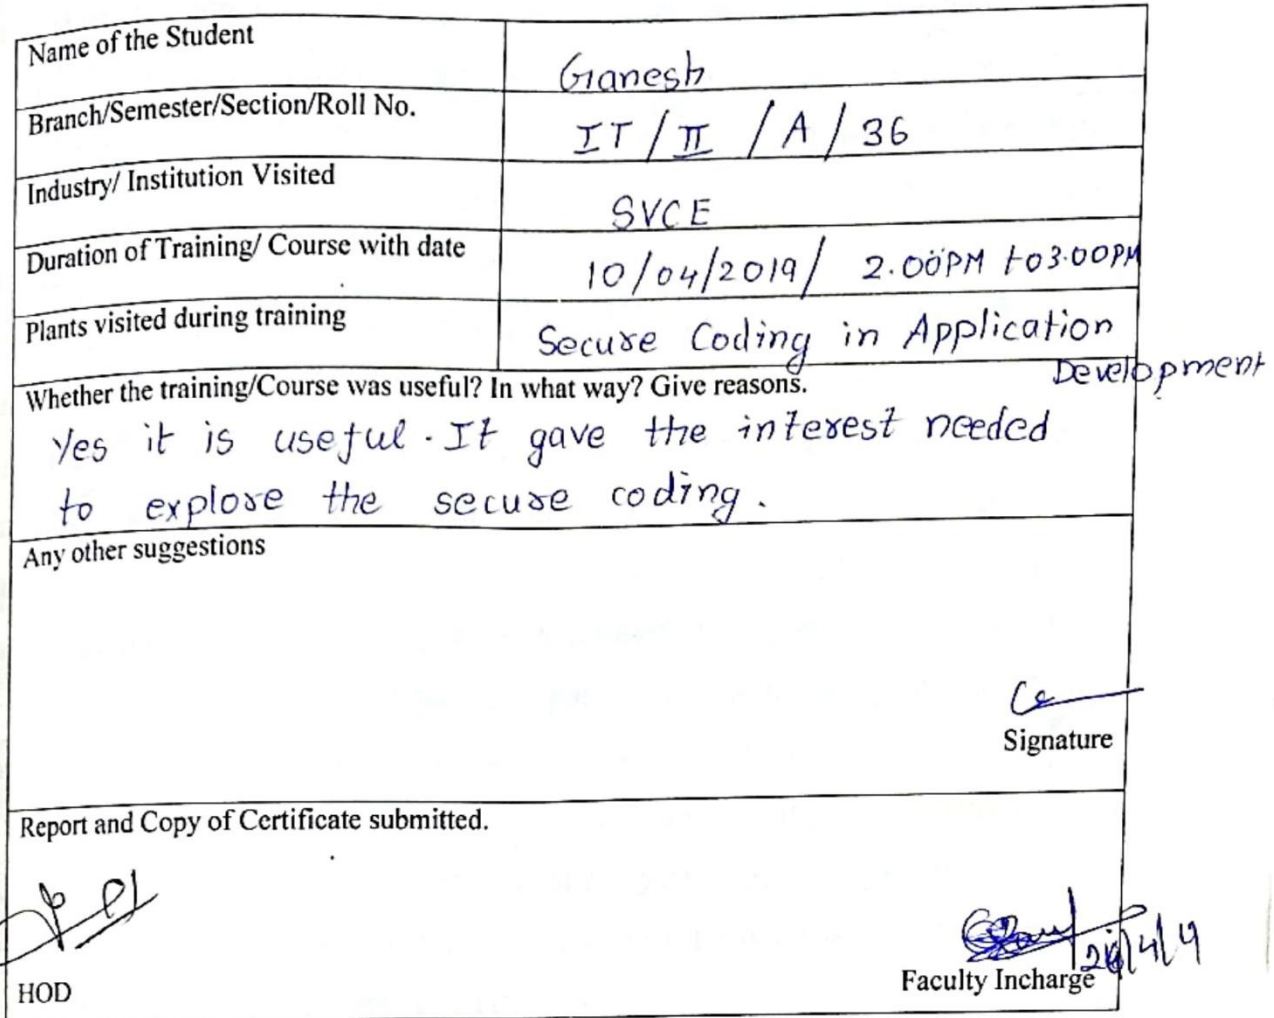 Name of the Student
Ganesh
Branch/Semester/Section/Roll No.
IT / II / A / 36
Industry/ Institution Visited
SVCE
Duration of Training/ Course with date
10/04/2019/ 2.00PM to 3.00PM
Plants visited during training
Secure Coding in Application
Development
Whether the training/Course was useful? In what way? Give reasons.
Yes it is useful. It gave the interest needed
to explore the secure coding.
Any other suggestions
Signature
Report and Copy of Certificate submitted.
HOD
Faculty Incharge